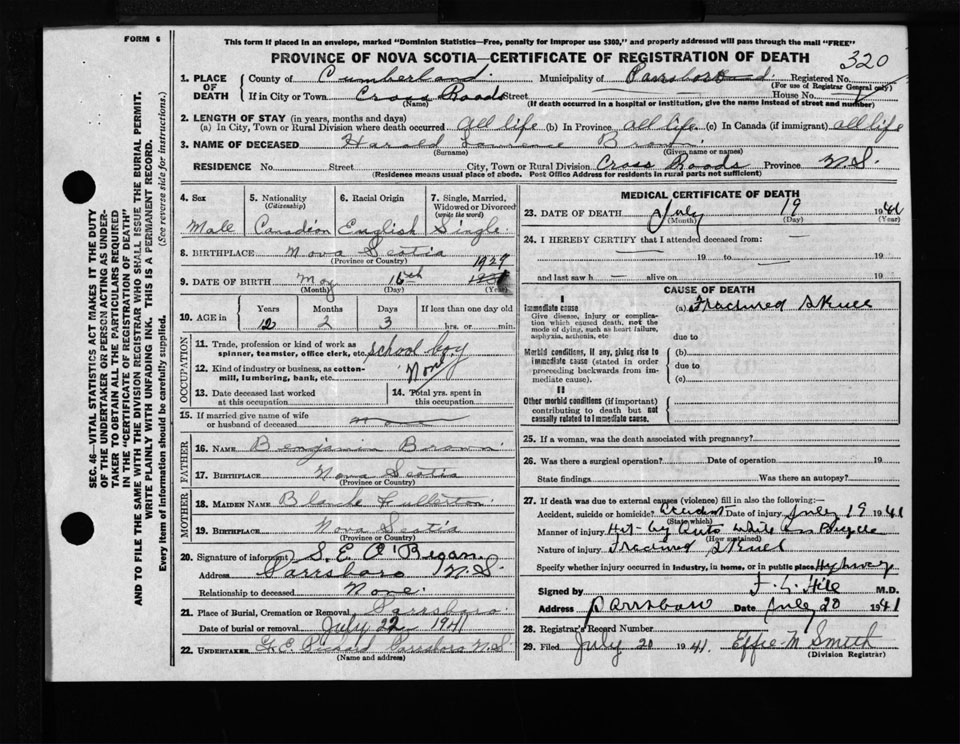 FORM 6
This form if placed in an envelope, marked "Dominion Statistics—Free, penalty for improper use $300," and properly addressed will pass through the mail "FREE"
PROVINCE OF NOVA SCOTIA—CERTIFICATE OF REGISTRATION OF DEATH
320
1. PLACE OF DEATH
County of Cumberland Municipality of Parrsboro Registered No.
(For use of Registrar General only)
If in City or Town Cross Roads Street House No.
(Name) (If death occurred in a hospital or institution, give the name instead of street and number)
2. LENGTH OF STAY (in years, months and days)
(a) In City, Town or Rural Division where death occurred all life (b) In Province all life (c) In Canada (if immigrant) all life
3. NAME OF DECEASED Harold Lawrence Brown
(Surname) (Given name or names)
RESIDENCE No. Street City, Town or Rural Division Cross Roads Province N.S.
(Residence means usual place of abode. Post Office Address for residents in rural parts not sufficient)
4. Sex
Male
5. Nationality
(Citizenship)
Canadian
6. Racial Origin
English
7. Single, Married, Widowed or Divorced
(write the word)
Single
8. BIRTHPLACE Nova Scotia
(Province or Country)
9. DATE OF BIRTH May 16th 1929
(Month) (Day) (Year)
10. AGE in Years Months Days If less than one day old
12 2 3 hrs. or min.
OCCUPATION
11. Trade, profession or kind of work as spinner, teamster, office clerk, etc. school boy
12. Kind of industry or business, as cotton-mill, lumbering, bank, etc. None
13. Date deceased last worked at this occupation
14. Total yrs. spent in this occupation
15. If married give name of wife or husband of deceased
FATHER
16. NAME Benjamin Brown
17. BIRTHPLACE Nova Scotia
(Province or Country)
MOTHER
18. MAIDEN NAME Blanche Fullerton
19. BIRTHPLACE Nova Scotia
(Province or Country)
20. Signature of informant S. E. O'Regan
Address Parrsboro N.S.
Relationship to deceased None
21. Place of Burial, Cremation or Removal Parrsboro
Date of burial or removal July 22 1941
22. UNDERTAKER Parrsboro N.S.
(Name and address)
MEDICAL CERTIFICATE OF DEATH
23. DATE OF DEATH July 19 1941
(Month) (Day) (Year)
24. I HEREBY CERTIFY that I attended deceased from
19 to 19
and last saw h alive on 19
CAUSE OF DEATH
I
Immediate cause
Give disease, injury or complication which caused death, not the mode of dying, such as heart failure, asphyxia, asthenia, etc
(a) Fractured Skull
due to
Morbid conditions, if any, giving rise to immediate cause (stated in order proceeding backwards from immediate cause).
(b)
due to
(c)
II
Other morbid conditions (if important) contributing to death but not causally related to immediate cause.
25. If a woman, was the death associated with pregnancy?
26. Was there a surgical operation? Date of operation 19
State findings Was there an autopsy?
27. If death was due to external causes (violence) fill in also the following:—
Accident, suicide or homicide? Accident Date of injury July 19 1941
(State which)
Manner of injury Hit by Auto while on Bicycle
(How sustained)
Nature of injury Fractured Skull
Specify whether injury occurred in industry, in home, or in public place Highway
Signed by Hill M.D.
Address Parrsboro Date July 20 1941
28. Registrar's Record Number
29. Filed July 20 1941. Effie M Smith
(Division Registrar)
SEC. 46—VITAL STATISTICS ACT MAKES IT THE DUTY
OF THE UNDERTAKER OR PERSON ACTING AS UNDERTAKER
TO OBTAIN ALL THE PARTICULARS REQUIRED
IN THE "CERTIFICATE OF REGISTRATION OF DEATH"
AND TO FILE THE SAME WITH THE DIVISION REGISTRAR WHO SHALL ISSUE THE BURIAL PERMIT.
WRITE PLAINLY WITH UNFADING INK. THIS IS A PERMANENT RECORD.
Every item of information should be carefully supplied. (See reverse side for instructions.)